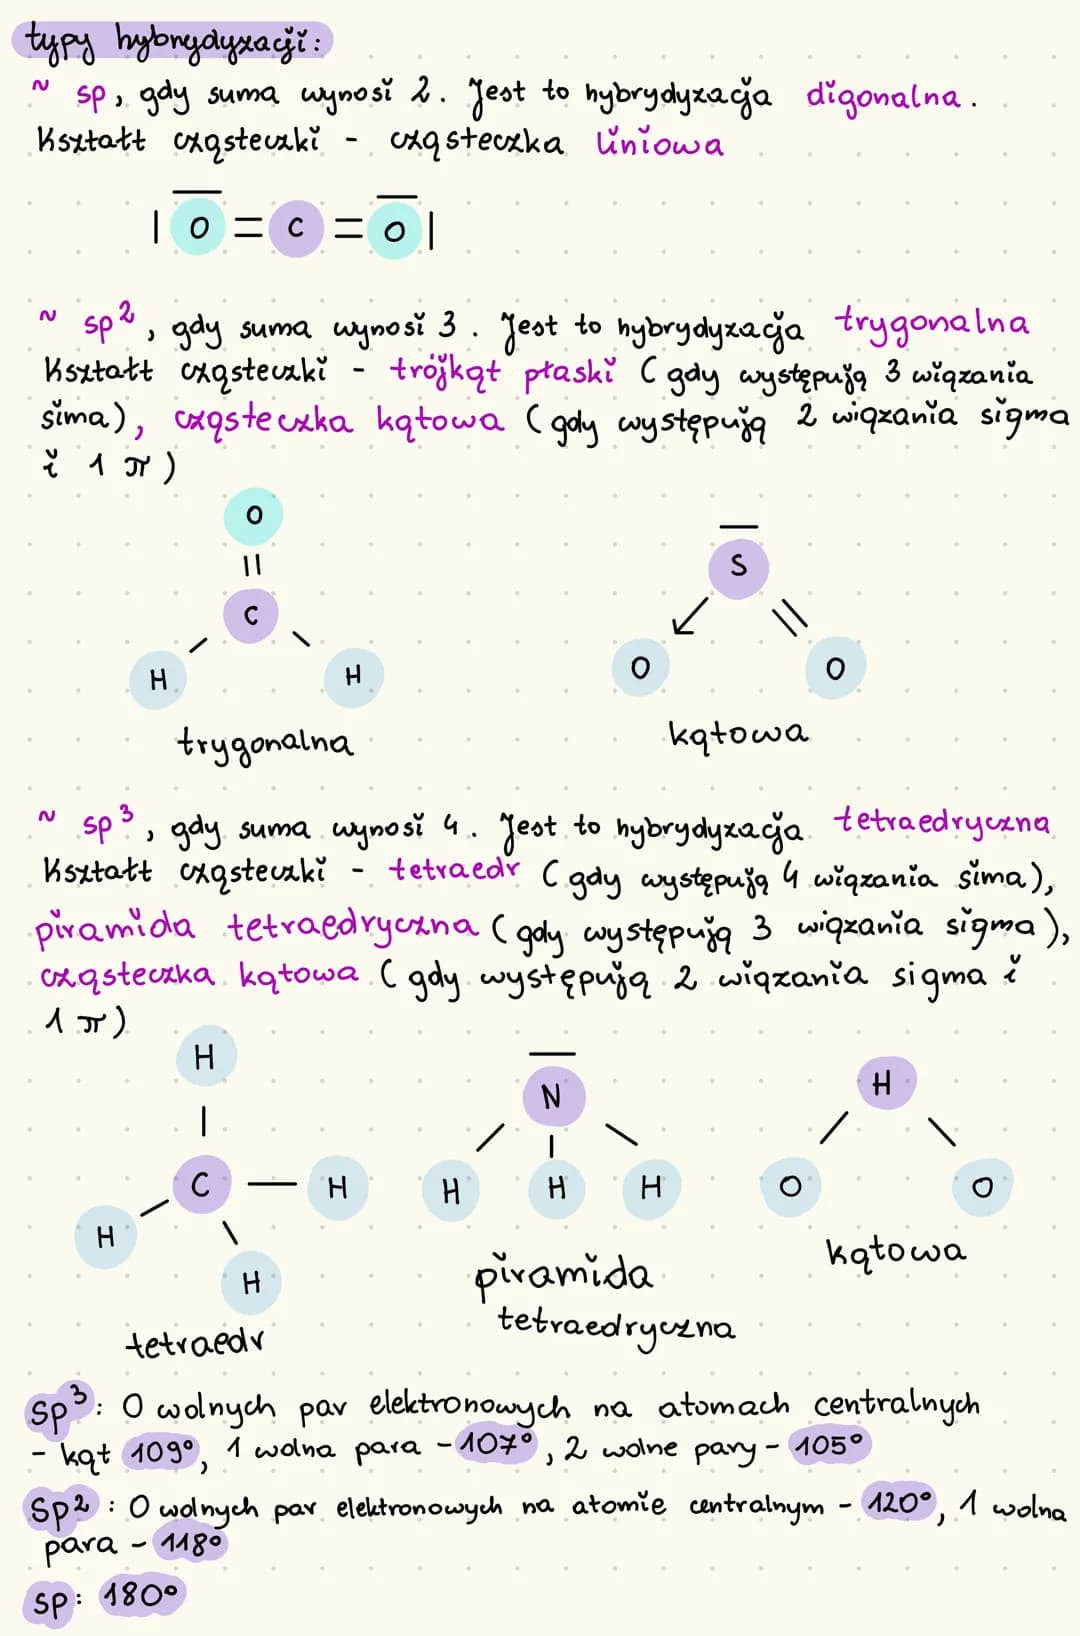 typy hybrydyzacji:
~ sp, gdy suma wynosi 2. Jest to hybrydyzacja digonalna.
Kształt cząsteczki - cząsteczka liniowa
| O = C = O |
~ sp², gdy suma wynosi 3. Jest to hybrydyzacja trygonalna
Kształt cząsteczki - trójkąt płaski (gdy występują 3 wiązania
sima), cząsteczka kątowa (gdy występują 2 wiązania sigma
i 1 π)
O
||
C
H
H
S
O
O
trygonalna
kątowa
~ sp³, gdy suma wynosi 4. Jest to hybrydyzacja tetraedryczna
Kształt cząsteczki - tetraedr (gdy występują 4 wiązania sima),
piramida tetraedryczna (gdy występują 3 wiązania sigma),
cząsteczka kątowa (gdy występują 2 wiązania sigma i
1 π)
H
C — H
H
H
tetraedr
N
H H H
piramida
tetraedryczna
H
O O
kątowa
sp³: 0 wolnych par elektronowych na atomach centralnych
- kąt 109°, 1 wolna para - 107°, 2 wolne pary - 105°
sp²: 0 wolnych par elektronowych na atomie centralnym - 120°, 1 wolna
para - 118°
sp: 180°